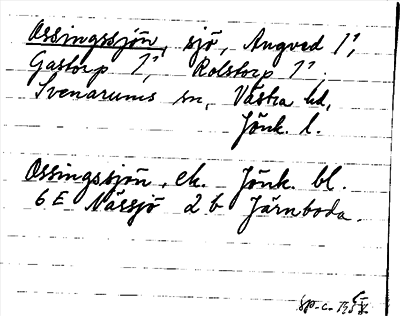 Ossingssjön, sjö, Angved 1¹,
Gastorp 1¹, Rolstorp 1¹,
Svenarums sn, Västra hd,
Jönk. l.
Ossingssjön, ek. Jönk. bl.
6 E Nässjö 2 b Järnboda.